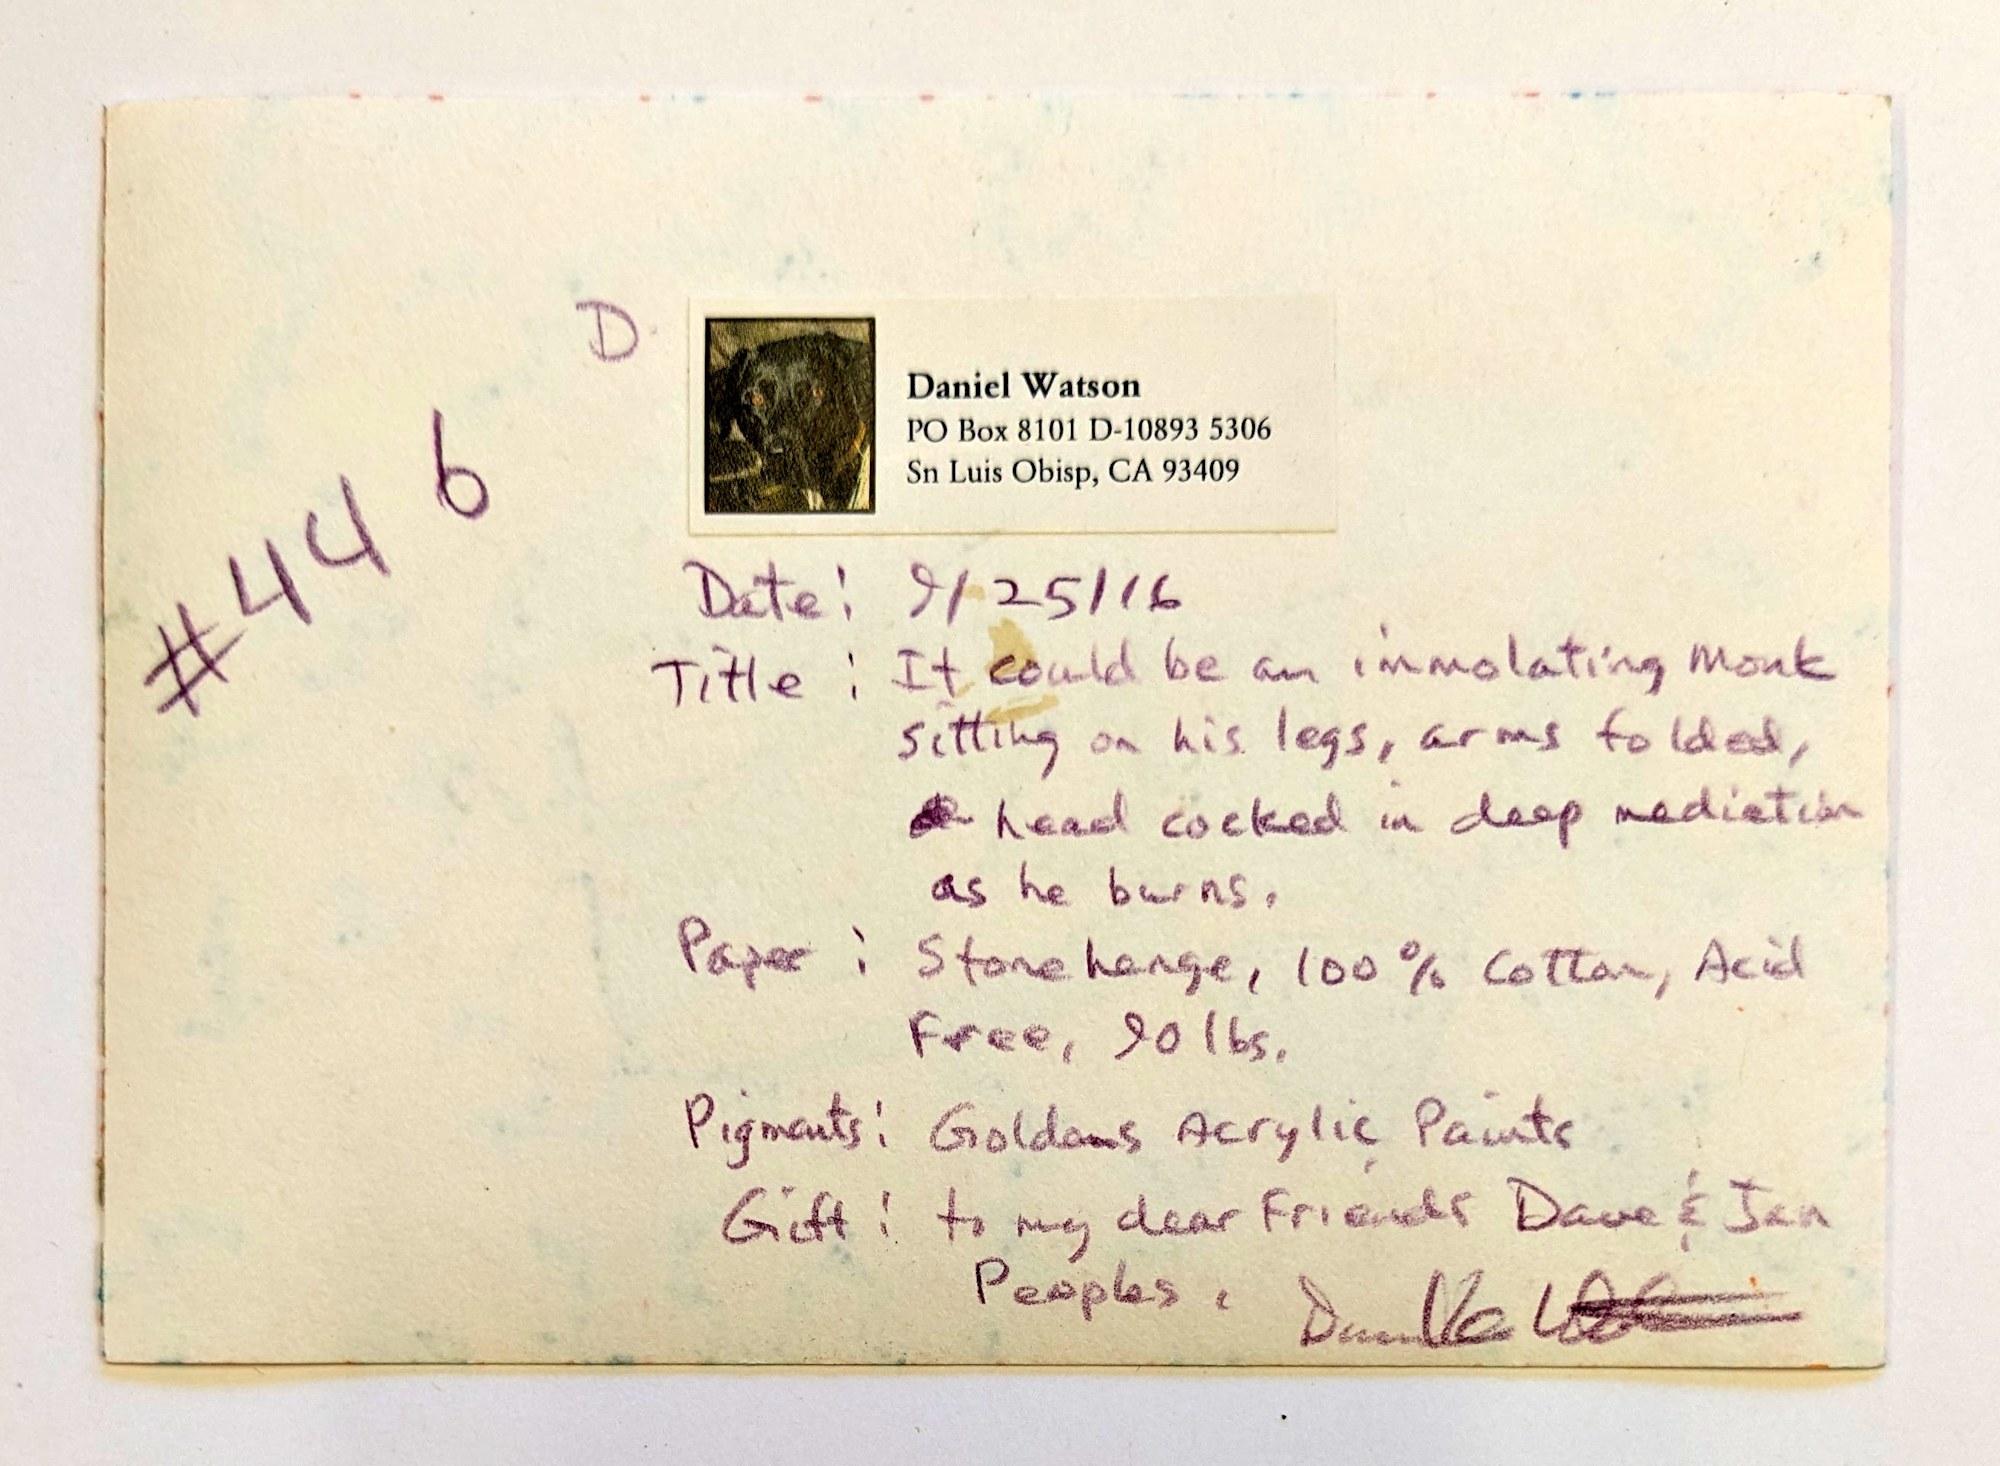 #446
D.
Daniel Watson
PO Box 8101 D-10893 5306
Sn Luis Obisp, CA 93409
Date: 9/25/16
Title: It could be an immolating Monk
sitting on his legs, arms folded,
head cocked in deep mediation
as he burns.
Paper: Stonehenge, 100% Cotton, Acid
Free, 90 lbs.
Pigments: Goldens Acrylic Paints
Gift: to my dear Friends Dave & Jan
Peoples.